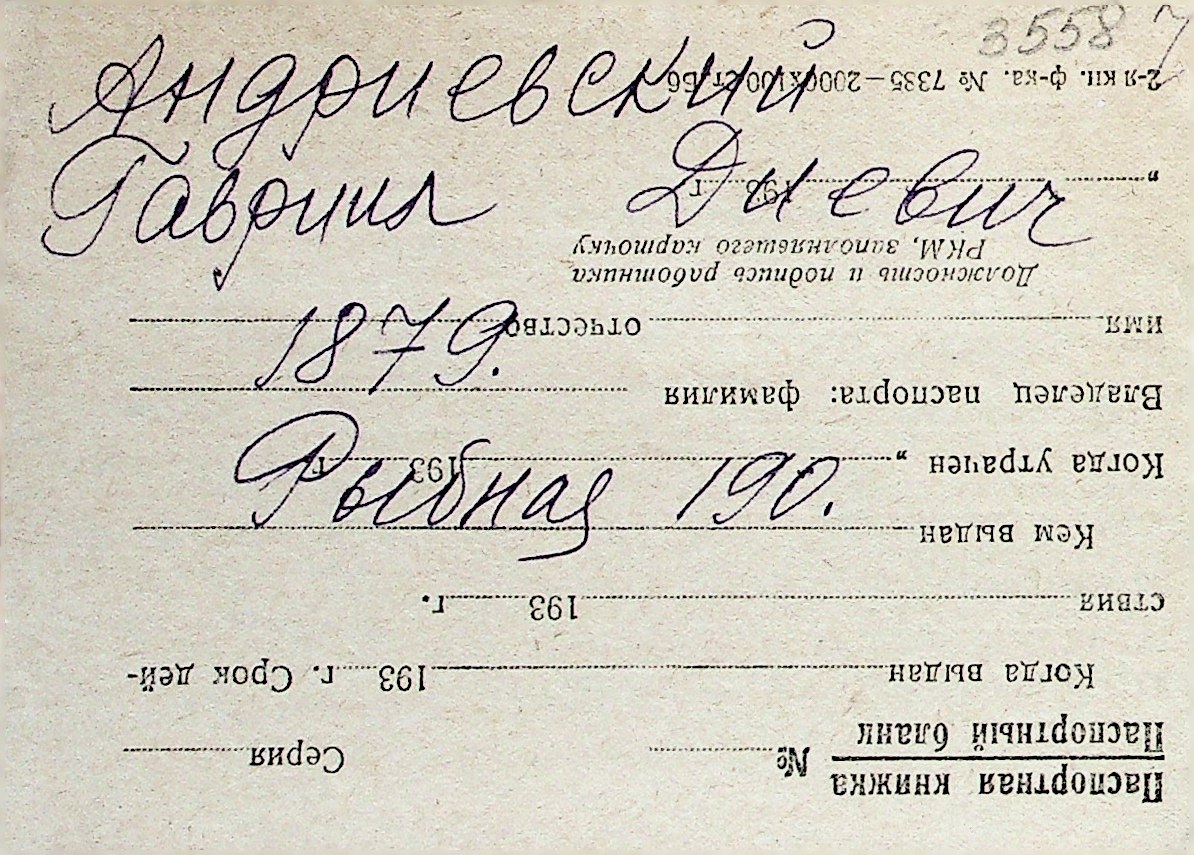 35587
Андриевский
Гавриил Диевич
1879.
Рыбная 190.
Паспортная книжка
Паспортный бланк
№ Серия
Когда выдан 193 г. Срок дей-
ствия 193 г.
Кем выдан
Когда утрачен „ 193 г.
Владелец паспорта: фамилия
имя отчество
Должность и подпись работника
РКМ, заполнявшего карточку
„ 193 г.
2-я кн. ф-ка. № 7335—2000х100 ст. Б6